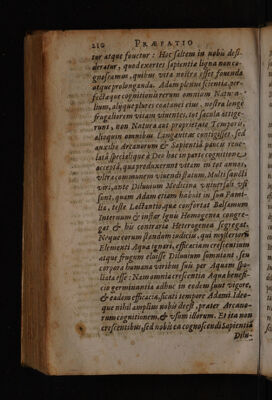 210 PRÆFATIO
tur atque fouetur : Hoc saltem in nobis desi-
deratur, quod expertes sapientia ligna non co-
gnoscamus, quibus vita nostra esset fouenda
atque prolonganda. Adam plenus scientia, per-
fectaque cognitionis rerum omnium Natura-
lium, alyque plures coatanei eius, nostra longè
frugaliorem vitam viuentes, tot sæcula attige-
runt, non Natura aut proprietate Temporis
aliisquin omnibus Longauitas contigisset, sed
auxilio Arcanorum & Sapientia paucis reue-
lata specialique à Deo hac in parte cognitione
accepta, qua produxerunt vitam in tot annos,
vltra communem viuendi statum. Multi sancti
viri, ante Diluuium Medicina vniuersali vsi
sunt, quam Adam etiam habuit in sua Fami-
lia, teste Lactantio quæ confortat Balsamum
Internum & instar Ignis Homogenea congre-
gat & his contraria Heterogenea segregat.
Neque eorum standum iudicio, qui mysteriorum
Elementi Aqua ignari, efficaciam crescentium
atque frugum eluisse Diluuium somniant, seu
corpora humana viribus suis per Aquam spo-
liata esse : Nam omnia crescentia Aqua benefi-
cio germinantia adhuc in eodem sunt vigore,
& eadem efficacia, sicuti tempore Adami. Ideo-
que nihil amplius nobis deest, præter Arcano-
rum cognitionem, & vsum illorum. Et ita non
crescentibus, sed nobis ea cognoscendi Sapientia
Dilu-